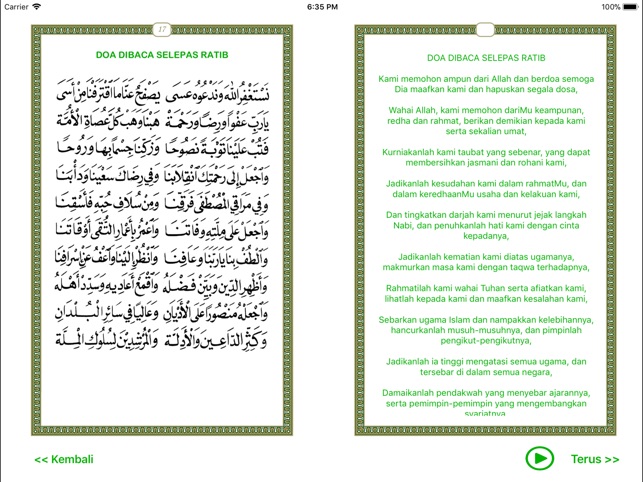 Carrier
6:35 PM
100%
17
DOA DIBACA SELEPAS RATIB
نَسْتَغْفِرُ اللهَ وَنَدْعُوهُ عَسَى يَصْفَحُ عَنَّا مَا اقْتَرَفْنَا مِنْ أَسَى
يَارَبِّ عَفْوًا وَرِضًا وَرَحْمَةْ هَبْنَا وَهَبْ كُلَّ عُصَاةِ الْأُمَّةْ
فَتُبْ عَلَيْنَا تَوْبَةً نَصُوحًا وَزَكِّنَا جِسْمًا بِهَا وَرُوحًا
وَاجْعَلْ إِلَى رَحْمَتِكَ انْقِلَابَنَا وَفِي رِضَاكَ سَعْيَنَا وَدَأْبَنَا
وَفِي مَرَاقِي الْمُصْطَفَى فَرَقِّنَا وَمِنْ سُلَافِ حُبِّهِ فَاسْقِنَا
وَاجْعَلْ عَلَى مِلَّتِهِ وَفَاتَنَا وَاعْمُرْ بِأَعْمَارِ التُّقَى أَوْقَاتَنَا
وَالْطُفْ بِنَا يَارَبَّنَا وَعَافِنَا وَانْظُرْ إِلَيْنَا وَاعْفُ عَنْ إِسْرَافِنَا
وَأَظْهِرِ الدِّينَ وَبَيِّنْ فَضْلَهُ وَاقْمَعْ أَعَادِيهِ وَسَدِّدْ أَهْلَهُ
وَاجْعَلْهُ مَنْصُورًا عَلَى الْأَدْيَانِ وَعَالِيًا فِي سَائِرِ الْبُلْدَانِ
وَكَثِّرِ الدَّاعِينَ وَالْأَدِلَّةْ وَالْمُرْشِدِينَ لِسُلُوكِ الْمِلَّةْ
DOA DIBACA SELEPAS RATIB
Kami memohon ampun dari Allah dan berdoa semoga
Dia maafkan kami dan hapuskan segala dosa,
Wahai Allah, kami memohon dariMu keampunan,
redha dan rahmat, berikan demikian kepada kami
serta sekalian umat,
Kurniakanlah kami taubat yang sebenar, yang dapat
membersihkan jasmani dan rohani kami,
Jadikanlah kesudahan kami dalam rahmatMu, dan
dalam keredhaanMu usaha dan kelakuan kami,
Dan tingkatkan darjah kami menurut jejak langkah
Nabi, dan penuhkanlah hati kami dengan cinta
kepadanya,
Jadikanlah kematian kami diatas ugamanya,
makmurkan masa kami dengan taqwa terhadapnya,
Rahmatilah kami wahai Tuhan serta afiatkan kami,
lihatlah kepada kami dan maafkan kesalahan kami,
Sebarkan ugama Islam dan nampakkan kelebihannya,
hancurkanlah musuh-musuhnya, dan pimpinlah
pengikut-pengikutnya,
Jadikanlah ia tinggi mengatasi semua ugama, dan
tersebar di dalam semua negara,
Damaikanlah pendakwah yang menyebar ajarannya,
serta pemimpin-pemimpin yang mengembangkan
syariatnya
<< Kembali
Terus >>